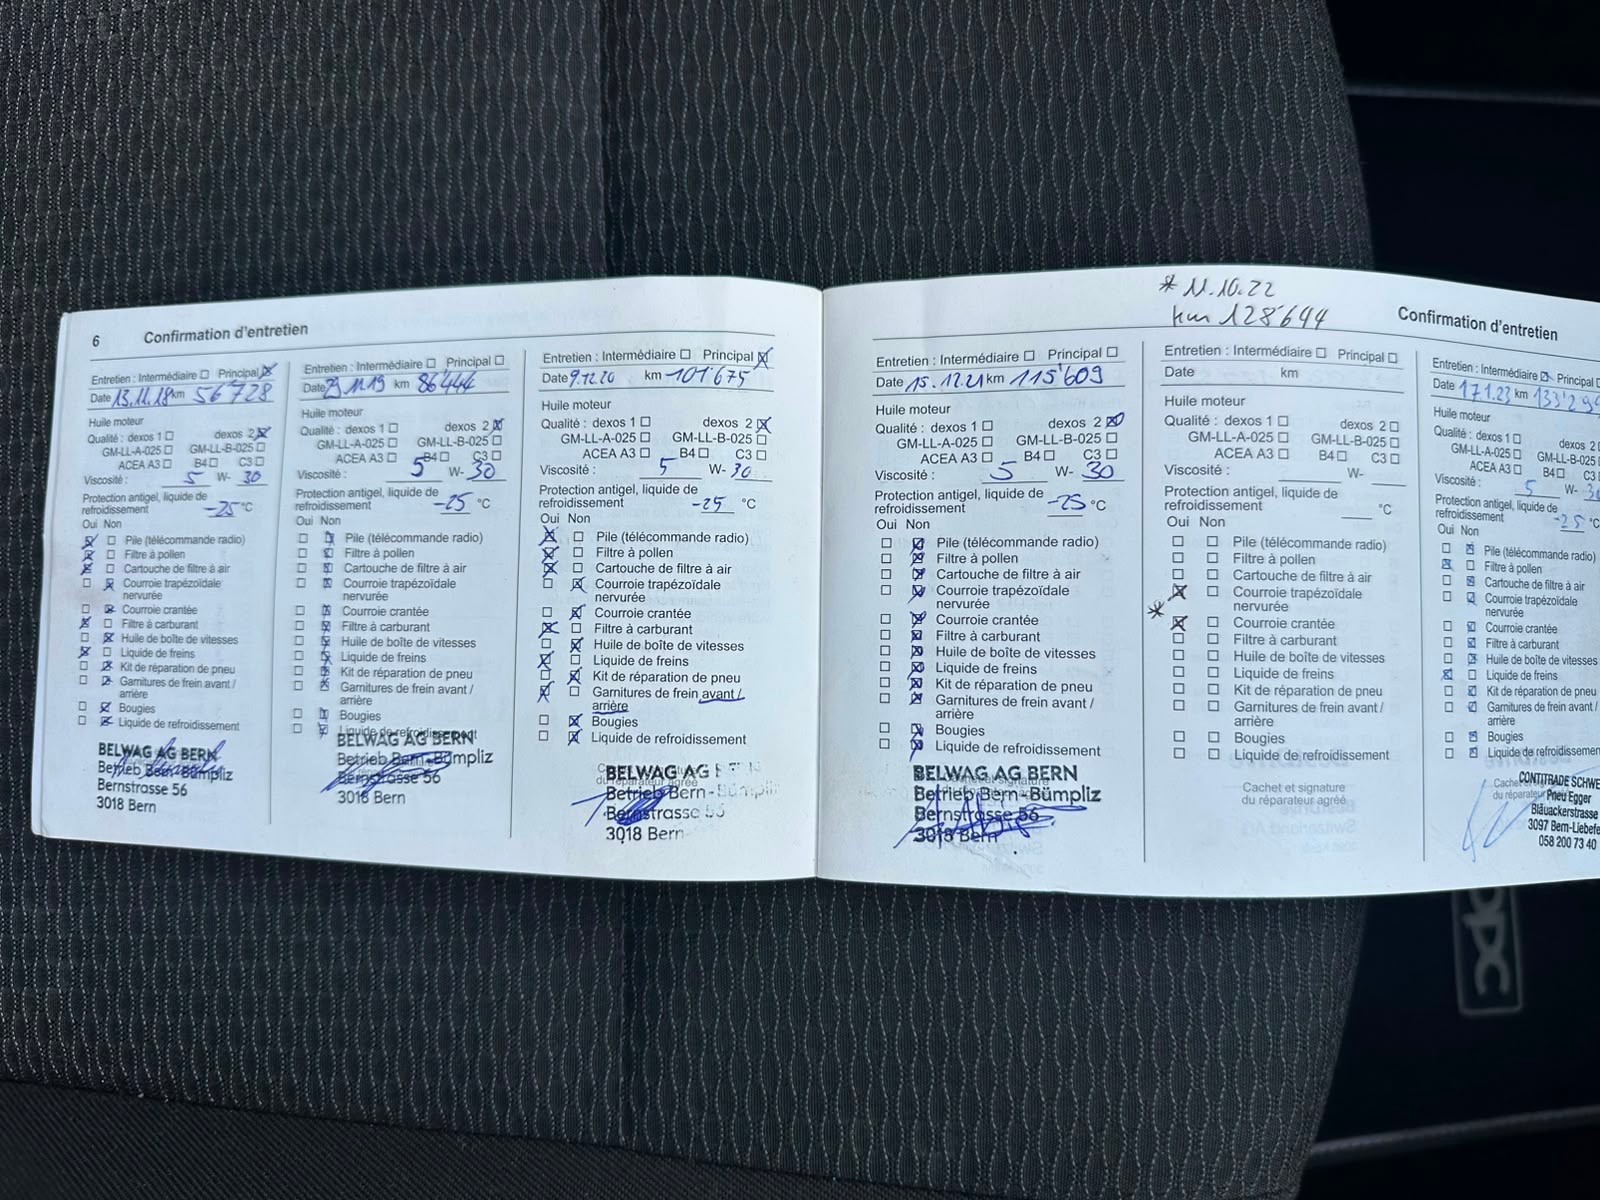 6 Confirmation d'entretien
Entretien : Intermédiaire ☐ Principal ☒
Date 13.11.18 km 56'728
Huile moteur
Qualité : dexos 1 ☐ dexos 2 ☒
GM-LL-A-025 ☐ GM-LL-B-025 ☐
ACEA A3 ☐ B4 ☐ C3 ☐
Viscosité : 5 W- 30
Protection antigel, liquide de
refroidissement -25 °C
Oui Non
☒ ☐ Pile (télécommande radio)
☒ ☐ Filtre à pollen
☒ ☐ Cartouche de filtre à air
☐ ☒ Courroie trapézoïdale
nervurée
☐ ☒ Courroie crantée
☒ ☐ Filtre à carburant
☐ ☒ Huile de boîte de vitesses
☒ ☐ Liquide de freins
☐ ☒ Kit de réparation de pneu
☐ ☒ Garnitures de frein avant /
arrière
☐ ☒ Bougies
☐ ☒ Liquide de refroidissement
BELWAG AG BERN
Betrieb Bern-Bümpliz
Bernstrasse 56
3018 Bern
Entretien : Intermédiaire ☐ Principal ☐
Date 29.11.19 km 86'444
Huile moteur
Qualité : dexos 1 ☐ dexos 2 ☒
GM-LL-A-025 ☐ GM-LL-B-025 ☐
ACEA A3 ☐ B4 ☐ C3 ☐
Viscosité : 5 W- 30
Protection antigel, liquide de
refroidissement -25 °C
Oui Non
☐ ☒ Pile (télécommande radio)
☐ ☒ Filtre à pollen
☐ ☒ Cartouche de filtre à air
☐ ☒ Courroie trapézoïdale
nervurée
☐ ☒ Courroie crantée
☐ ☒ Filtre à carburant
☐ ☒ Huile de boîte de vitesses
☐ ☒ Liquide de freins
☐ ☒ Kit de réparation de pneu
☐ ☒ Garnitures de frein avant /
arrière
☐ ☒ Bougies
☐ ☒ Liquide de refroidissement
BELWAG AG BERN
Betrieb Bern-Bümpliz
Bernstrasse 56
3018 Bern
Entretien : Intermédiaire ☐ Principal ☒
Date 9.12.20 km 101'675
Huile moteur
Qualité : dexos 1 ☐ dexos 2 ☒
GM-LL-A-025 ☐ GM-LL-B-025 ☐
ACEA A3 ☐ B4 ☐ C3 ☐
Viscosité : 5 W- 30
Protection antigel, liquide de
refroidissement -25 °C
Oui Non
☒ ☐ Pile (télécommande radio)
☒ ☐ Filtre à pollen
☒ ☐ Cartouche de filtre à air
☐ ☒ Courroie trapézoïdale
nervurée
☐ ☒ Courroie crantée
☒ ☐ Filtre à carburant
☐ ☒ Huile de boîte de vitesses
☒ ☐ Liquide de freins
☐ ☒ Kit de réparation de pneu
☒ ☐ Garnitures de frein avant /
arrière
☐ ☒ Bougies
☐ ☒ Liquide de refroidissement
BELWAG AG BERN
Betrieb Bern-Bümpliz
Bernstrasse 56
3018 Bern
* 11.10.22
km 128'644
Confirmation d'entretien
Entretien : Intermédiaire ☐ Principal ☐
Date 15.12.21 km 115'609
Huile moteur
Qualité : dexos 1 ☐ dexos 2 ☒
GM-LL-A-025 ☐ GM-LL-B-025 ☐
ACEA A3 ☐ B4 ☐ C3 ☐
Viscosité : 5 W- 30
Protection antigel, liquide de
refroidissement -25 °C
Oui Non
☐ ☒ Pile (télécommande radio)
☐ ☒ Filtre à pollen
☐ ☒ Cartouche de filtre à air
☐ ☒ Courroie trapézoïdale
nervurée
☐ ☒ Courroie crantée
☐ ☒ Filtre à carburant
☐ ☒ Huile de boîte de vitesses
☐ ☒ Liquide de freins
☐ ☒ Kit de réparation de pneu
☐ ☒ Garnitures de frein avant /
arrière
☐ ☒ Bougies
☐ ☒ Liquide de refroidissement
BELWAG AG BERN
Betrieb Bern-Bümpliz
Bernstrasse 56
3018 Bern
Entretien : Intermédiaire ☐ Principal ☐
Date km
Huile moteur
Qualité : dexos 1 ☐ dexos 2 ☐
GM-LL-A-025 ☐ GM-LL-B-025 ☐
ACEA A3 ☐ B4 ☐ C3 ☐
Viscosité : W-
Protection antigel, liquide de
refroidissement °C
Oui Non
☐ ☐ Pile (télécommande radio)
☐ ☐ Filtre à pollen
☐ ☐ Cartouche de filtre à air
☒ ☐ Courroie trapézoïdale
nervurée
* ☒ ☐ Courroie crantée
☐ ☐ Filtre à carburant
☐ ☐ Huile de boîte de vitesses
☐ ☐ Liquide de freins
☐ ☐ Kit de réparation de pneu
☐ ☐ Garnitures de frein avant /
arrière
☐ ☐ Bougies
☐ ☐ Liquide de refroidissement
Cachet et signature
du réparateur agréé
Entretien : Intermédiaire ☒ Principal
Date 17.1.23 km 133'2
Huile moteur
Qualité : dexos 1 ☐ dexos 2
GM-LL-A-025 ☐ GM-LL-B-025
ACEA A3 ☐ B4 ☐ C3
Viscosité : 5 W- 3
Protection antigel, liquide de
refroidissement -25 °C
Oui Non
☐ ☒ Pile (télécommande radio)
☒ ☐ Filtre à pollen
☐ ☒ Cartouche de filtre à air
☐ ☒ Courroie trapézoïdale
nervurée
☐ ☒ Courroie crantée
☐ ☒ Filtre à carburant
☐ ☒ Huile de boîte de vitesses
☒ ☐ Liquide de freins
☐ ☒ Kit de réparation de pneu
☐ ☒ Garnitures de frein avant /
arrière
☐ ☒ Bougies
☐ ☒ Liquide de refroidissemen
CONTITRADE SCHWE
du réparateur Pneu Egger
Bläuackerstrasse
3097 Bern-Liebefe
058 200 73 40
opc